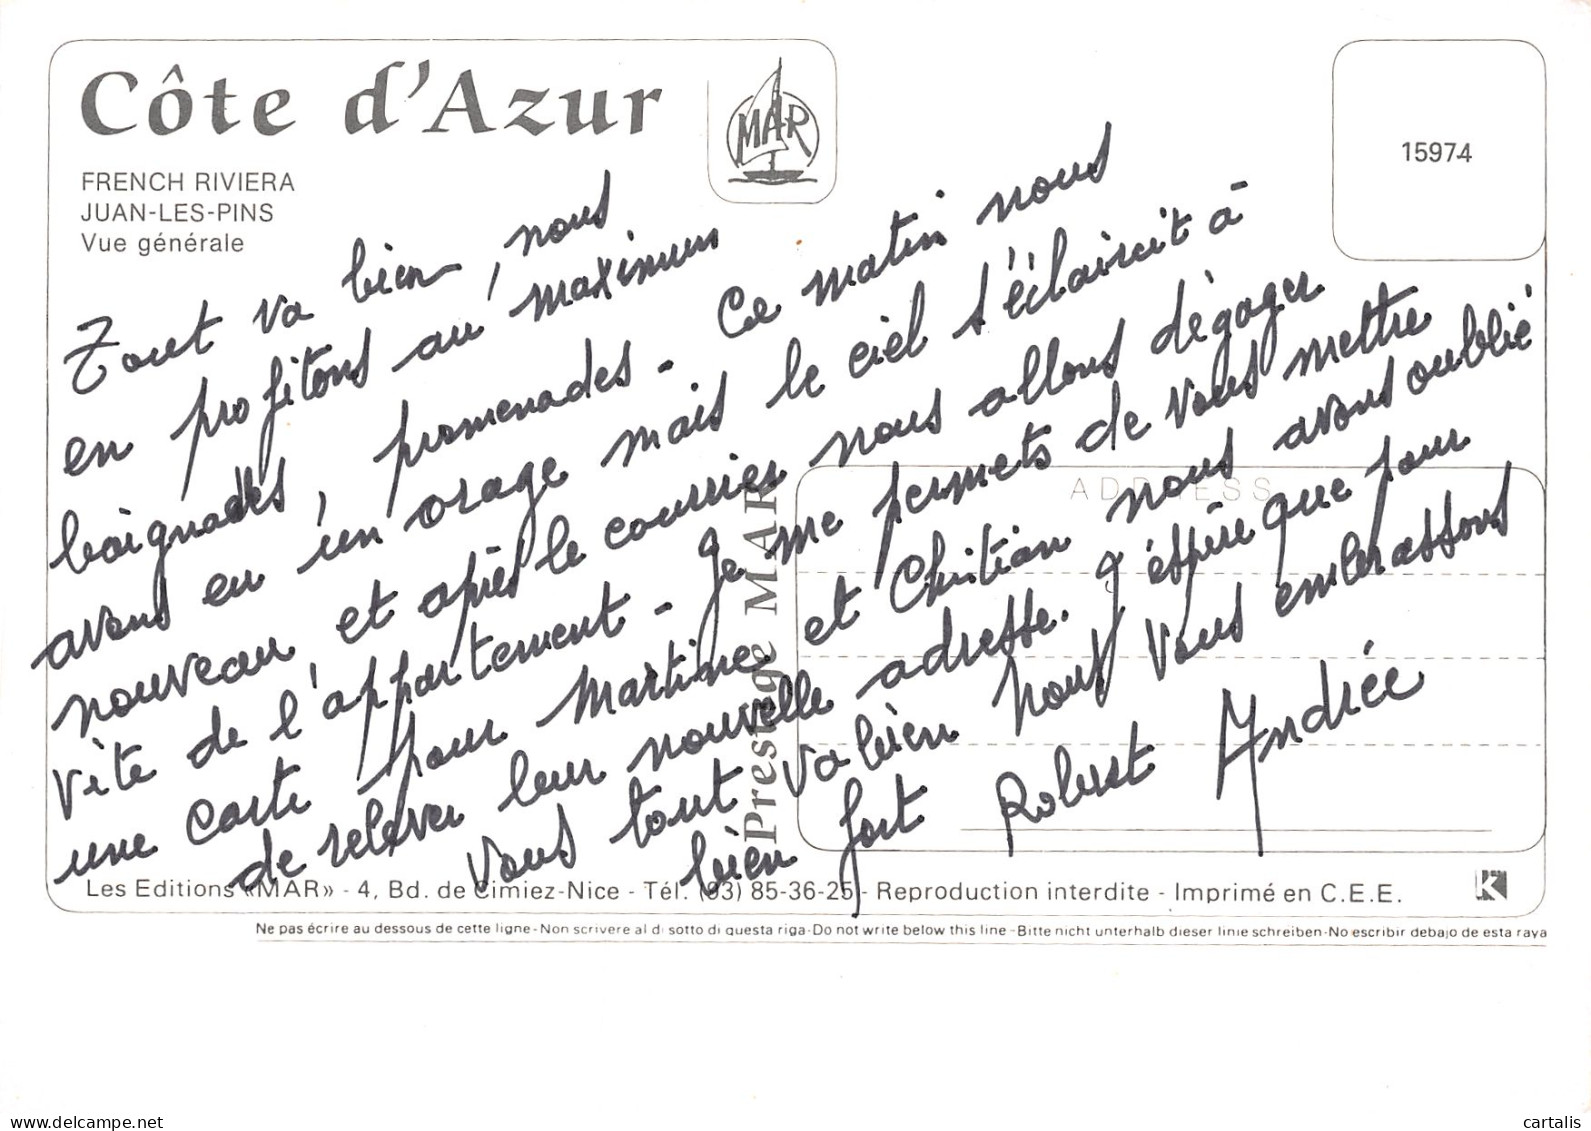 Côte d'Azur
MAR
15974
FRENCH RIVIERA
JUAN-LES-PINS
Vue générale
Tout va bien, nous
en profitons au maximum
baignades, promenades - Ce matin nous
avons eu un orage mais le ciel s'éclaircit à
nouveau et après le courrier nous allons dégager
vite de l'appartement - Je me permets de vous mettre
une carte pour Martine et Christian nous avons oublié
de relever leur nouvelle adresse. J'espère que pour
vous tout va bien nous vous embrassons
bien fort Robert Andrée
ADDRESS
Prestige MAR
Les Editions «MAR» - 4, Bd. de Cimiez-Nice - Tél. (93) 85-36-25 - Reproduction interdite - Imprimé en C.E.E.
K
Ne pas écrire au dessous de cette ligne-Non scrivere al di sotto di questa riga-Do not write below this line-Bitte nicht unterhalb dieser linie schreiben-No escribir debajo de esta raya
delcampe.net
cartalis